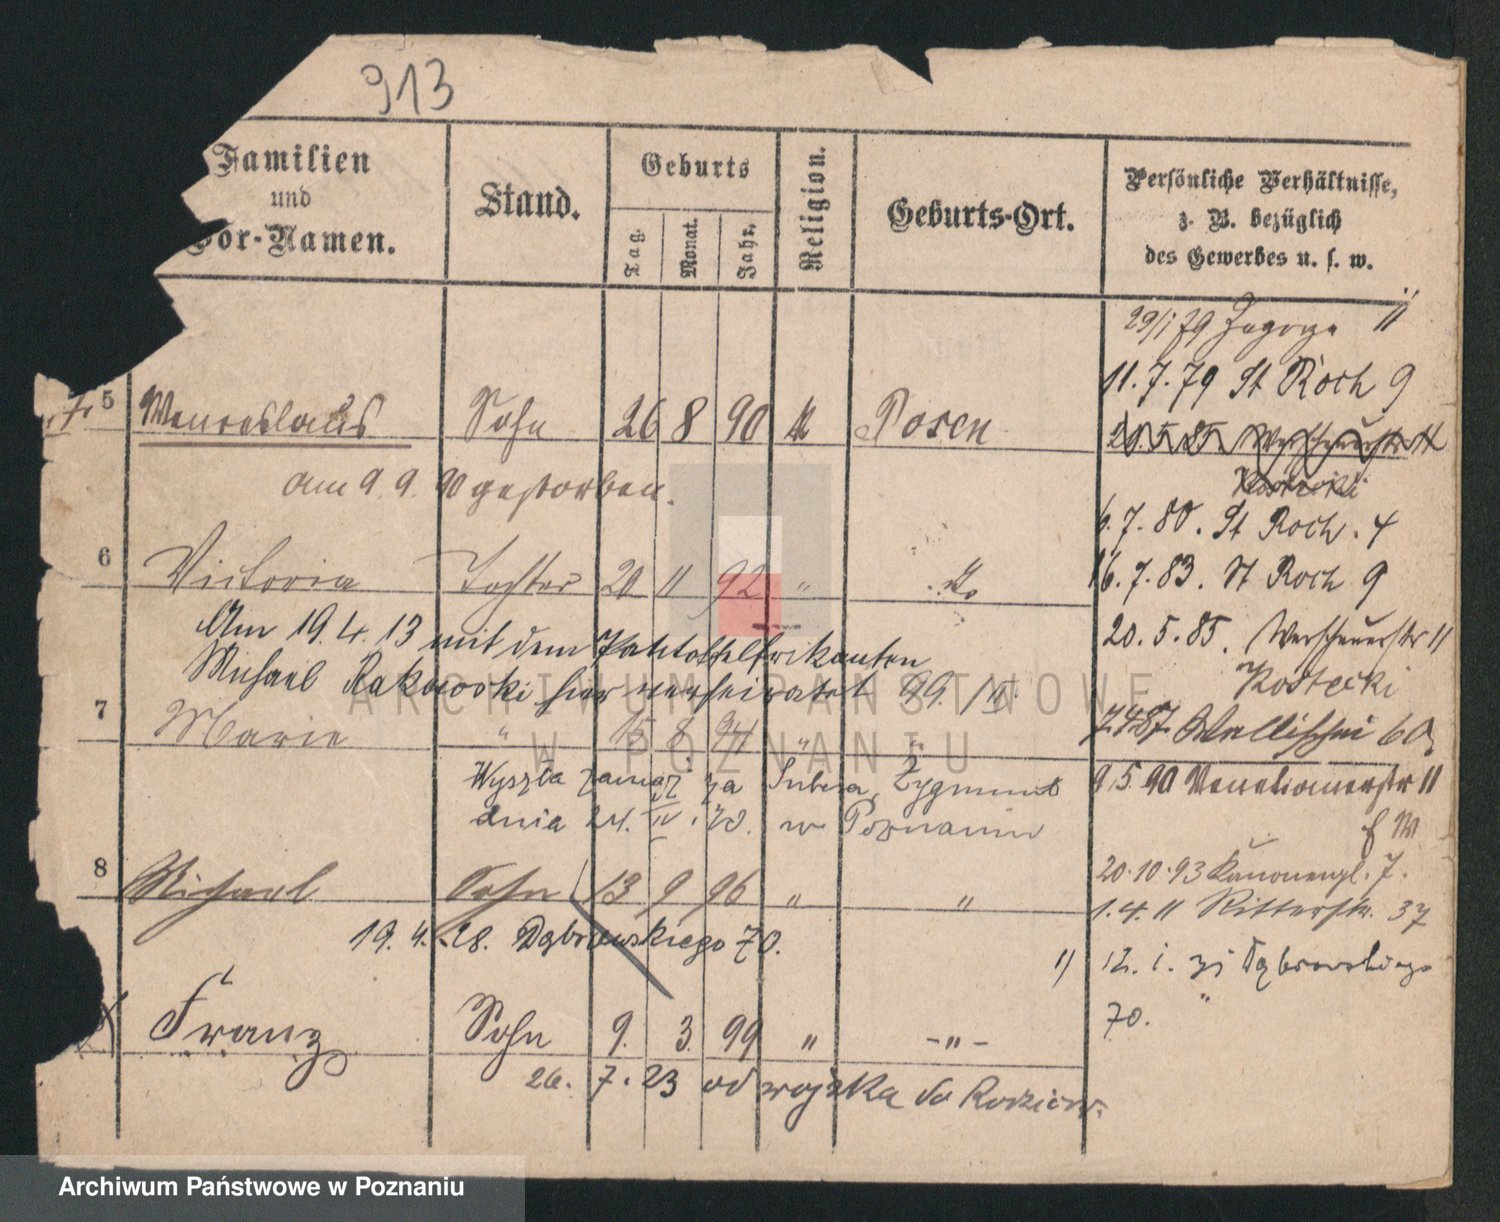 913
Familien
und
Vor-Namen.
Stand.
Geburts
Tag.
Monat.
Jahr.
Religion.
Geburts-Ort.
Persönliche Verhältnisse,
z. B. bezüglich
des Gewerbes u. s. w.
29/1 79 Zagorze 11
11. 7. 79 St Roch 9
5 Wenceslaus Sohn 26 8 90 k Posen
20. 5. 85. Werscheuerstr 11
Kostecki
am 9. 9. 90 gestorben.
6. 7. 80. St Roch. 4
6 Victoria Tochter 20 11 92 " do
16. 7. 83. St Roch 9
Am 19. 4. 13 mit dem Pantoffelfrikanten
20. 5. 85. Werscheuerstr 11
Michael Rakowski hier verheiratet 99. / II.
Kostecki
7 Marie " 15 8. 94 "
7.4.87. Wallischei 60
Wyszła zamąż za Zygmunt
9.5.90 Venetianerstr 11
dnia 24. IV. 20. w Poznaniu
f W
8 Michael Sohn 13 9 96 " "
20.10.93 Kanonenpl. 7.
1. 4. 11 Ritterstr. 37
19. 4. 28. Dąbrowskiego 70.
1) 12. 1. Dąbrowskiego
70.
Franz Sohn 9. 3. 99 " -"-
26. 7. 23 od wojska do Rodziców.
ARCHIWUM PAŃSTWOWE
W POZNANIU
Archiwum Państwowe w Poznaniu